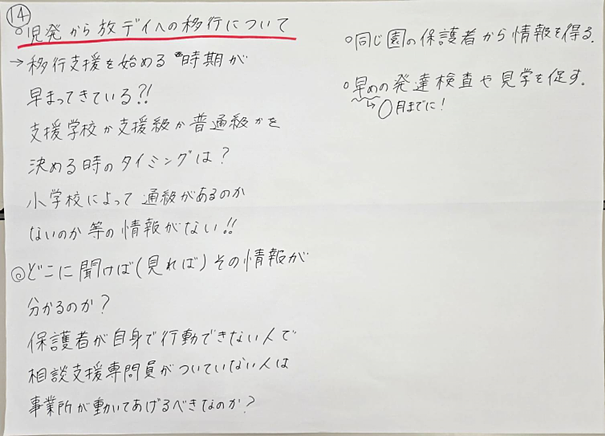 ⑭
○児発から放デイへの移行について
→移行支援を始める時期が
早まってきている?!
支援学校か支援級か普通級かを
決める時のタイミングは?
小学校によって通級があるのか
ないのか等の情報がない!!
◎どこに聞けば(見れば)その情報が
分かるのか?
保護者が自身で行動できない人で
相談支援専問員がついていない人は
事業所が動いてあげるべきなのか?
○同じ園の保護者から情報を得る.
○早めの発達検査や見学を促す.
→○月までに!